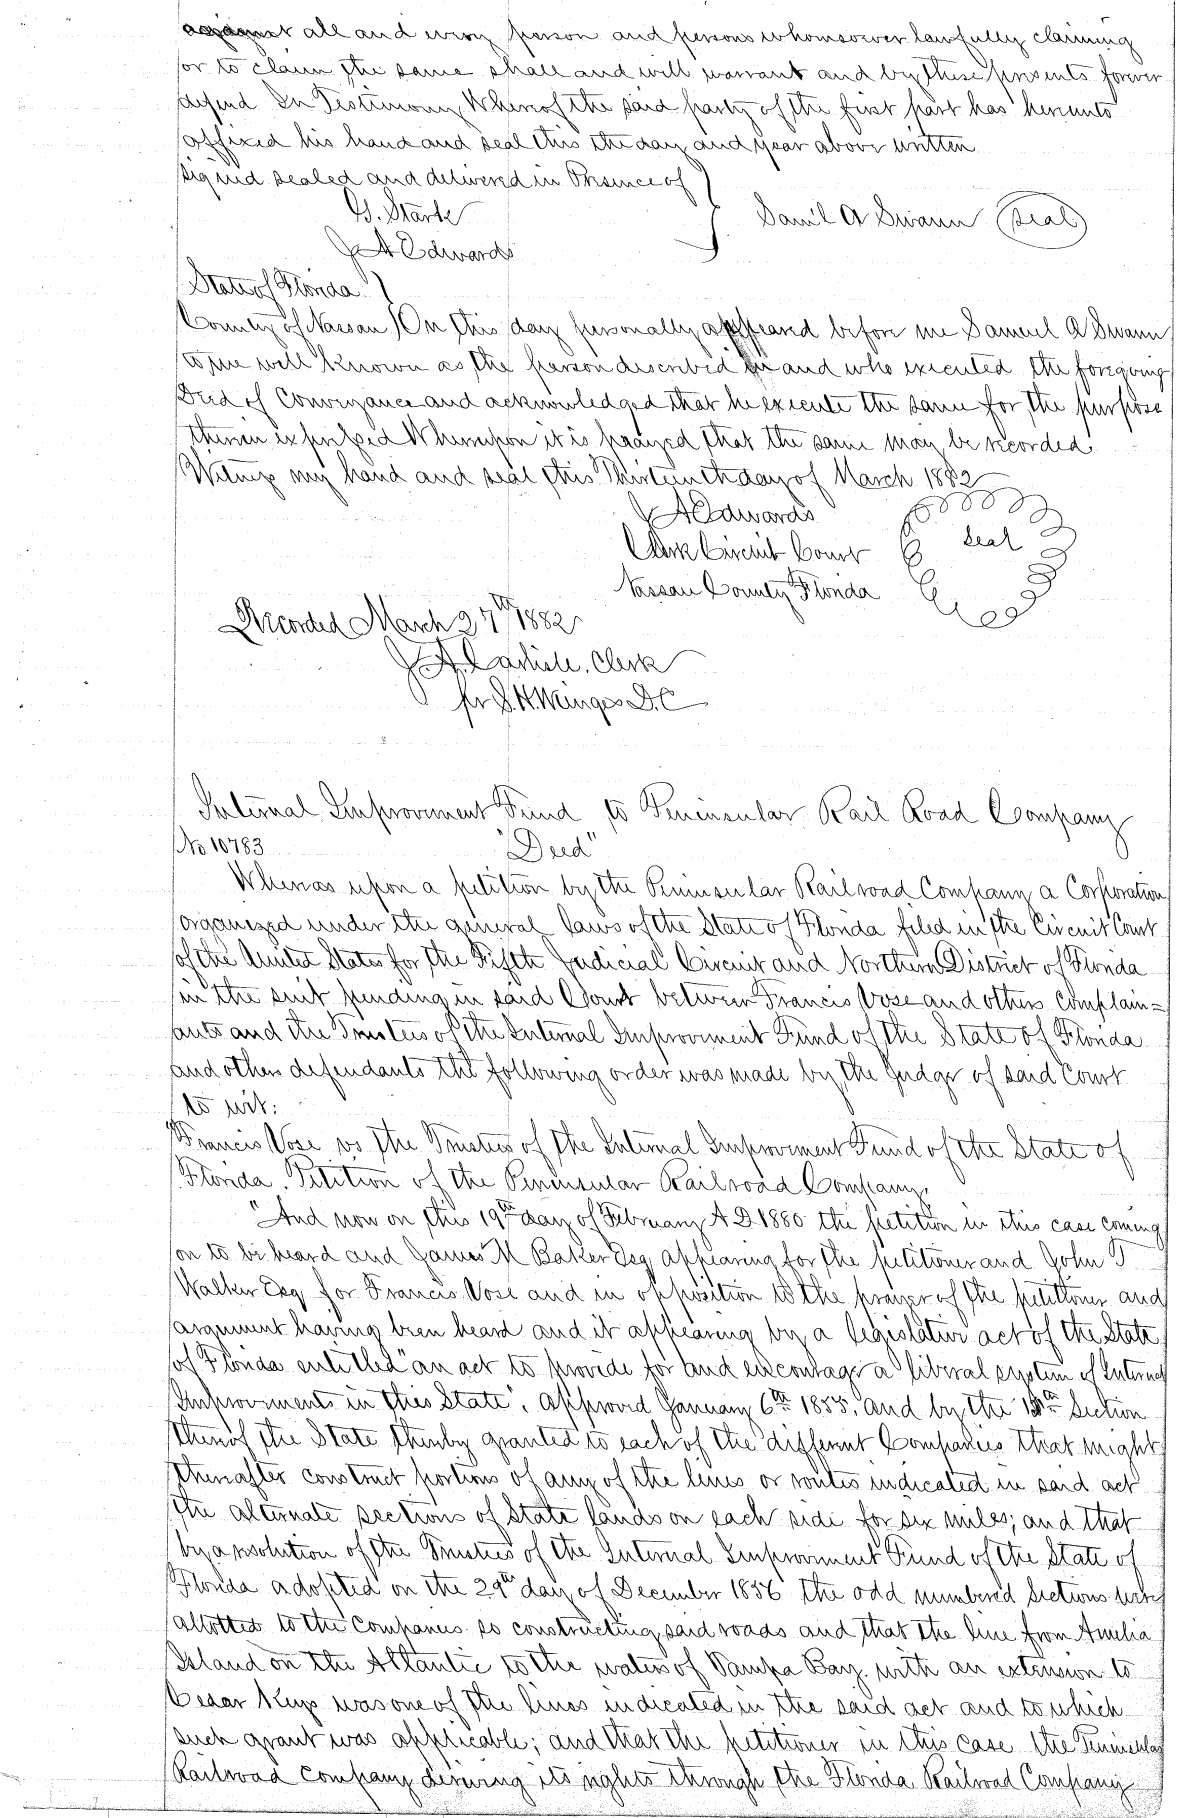 against all and every person and persons whomsoever lawfully claiming
or to claim the same shall and will warrant and by these presents forever
defend In Testimony Whereof the said party of the first part has hereunto
affixed his hand and seal this the day and year above written
Signed sealed and delivered in Presence of
G. Stark
J A Edwards
Sam'l A Swann (seal)
State of Florida
County of Nassau On this day personally appeared before me Samuel A Swann
to me well known as the person described in and who executed the foregoing
Deed of Conveyance and acknowledged that he execute the same for the purpose
therein expressed Whereupon it is prayed that the same may be recorded.
Witness my hand and seal this Thirteenth day of March 1882
J A Edwards
Clerk Circuit Court
Nassau County Florida
Seal
Recorded March 27th 1882
J. A. Carlisle, Clerk
pr S. H. D. C
Internal Improvement Fund to Peninsular Rail Road Company
No 10783 "Deed"
Whereas upon a petition by the Peninsular Railroad Company a Corporation
organized under the general laws of the State of Florida filed in the Circuit Court
of the United States for the Fifth Judicial Circuit and Northern District of Florida
in the suit pending in said Court between Francis Vose and others complain=
ants and the Trustees of the Internal Improvement Fund of the State of Florida
and others defendants the following order was made by the Judge of said Court
to wit:
"Francis Vose vs The Trustees of the Internal Improvement Fund of the State of
Florida. Petition of the Peninsular Railroad Company.
"And now on this 19th day of February A D 1880 the petition in this case coming
on to be heard and James M Baker Esq appearing for the petitioner and John T
Walker Esq for Francis Vose and in opposition to the prayer of the petitioner and
argument having been heard and it appearing by a legislative act of the State
of Florida entitled "an act to provide for and encourage a liberal system of Internal
Improvements in this State", approved January 6th 1855, and by the 15th Section
thereof the State thereby granted to each of the different Companies that might
thereafter construct portions of any of the lines or routes indicated in said act
the alternate sections of State lands on each side for six miles; and that
by a resolution of the Trustees of the Internal Improvement Fund of the State of
Florida adopted on the 29th day of December 1856 the odd numbered Sections were
allotted to the Companies so constructing said roads and that the line from Amelia
Island on the Atlantic to the waters of Tampa Bay with an extension to
Cedar Keys was one of the lines indicated in the said act and to which
such grant was applicable; and that the petitioner in this case the Peninsular
Railroad Company deriving its rights through the Florida Railroad Company